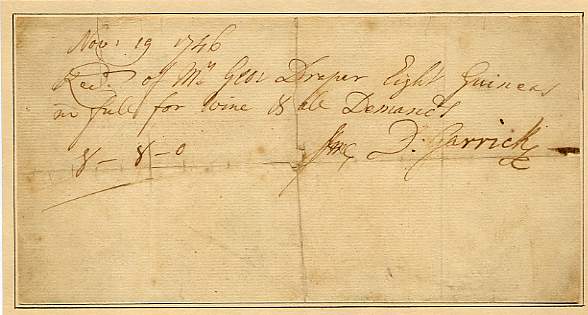 Nov: 19 1746
Recd. of Mr Geor Draper Eight Guineas
in full for wine & all Demands
8 - 8 - 0 D. Garrick